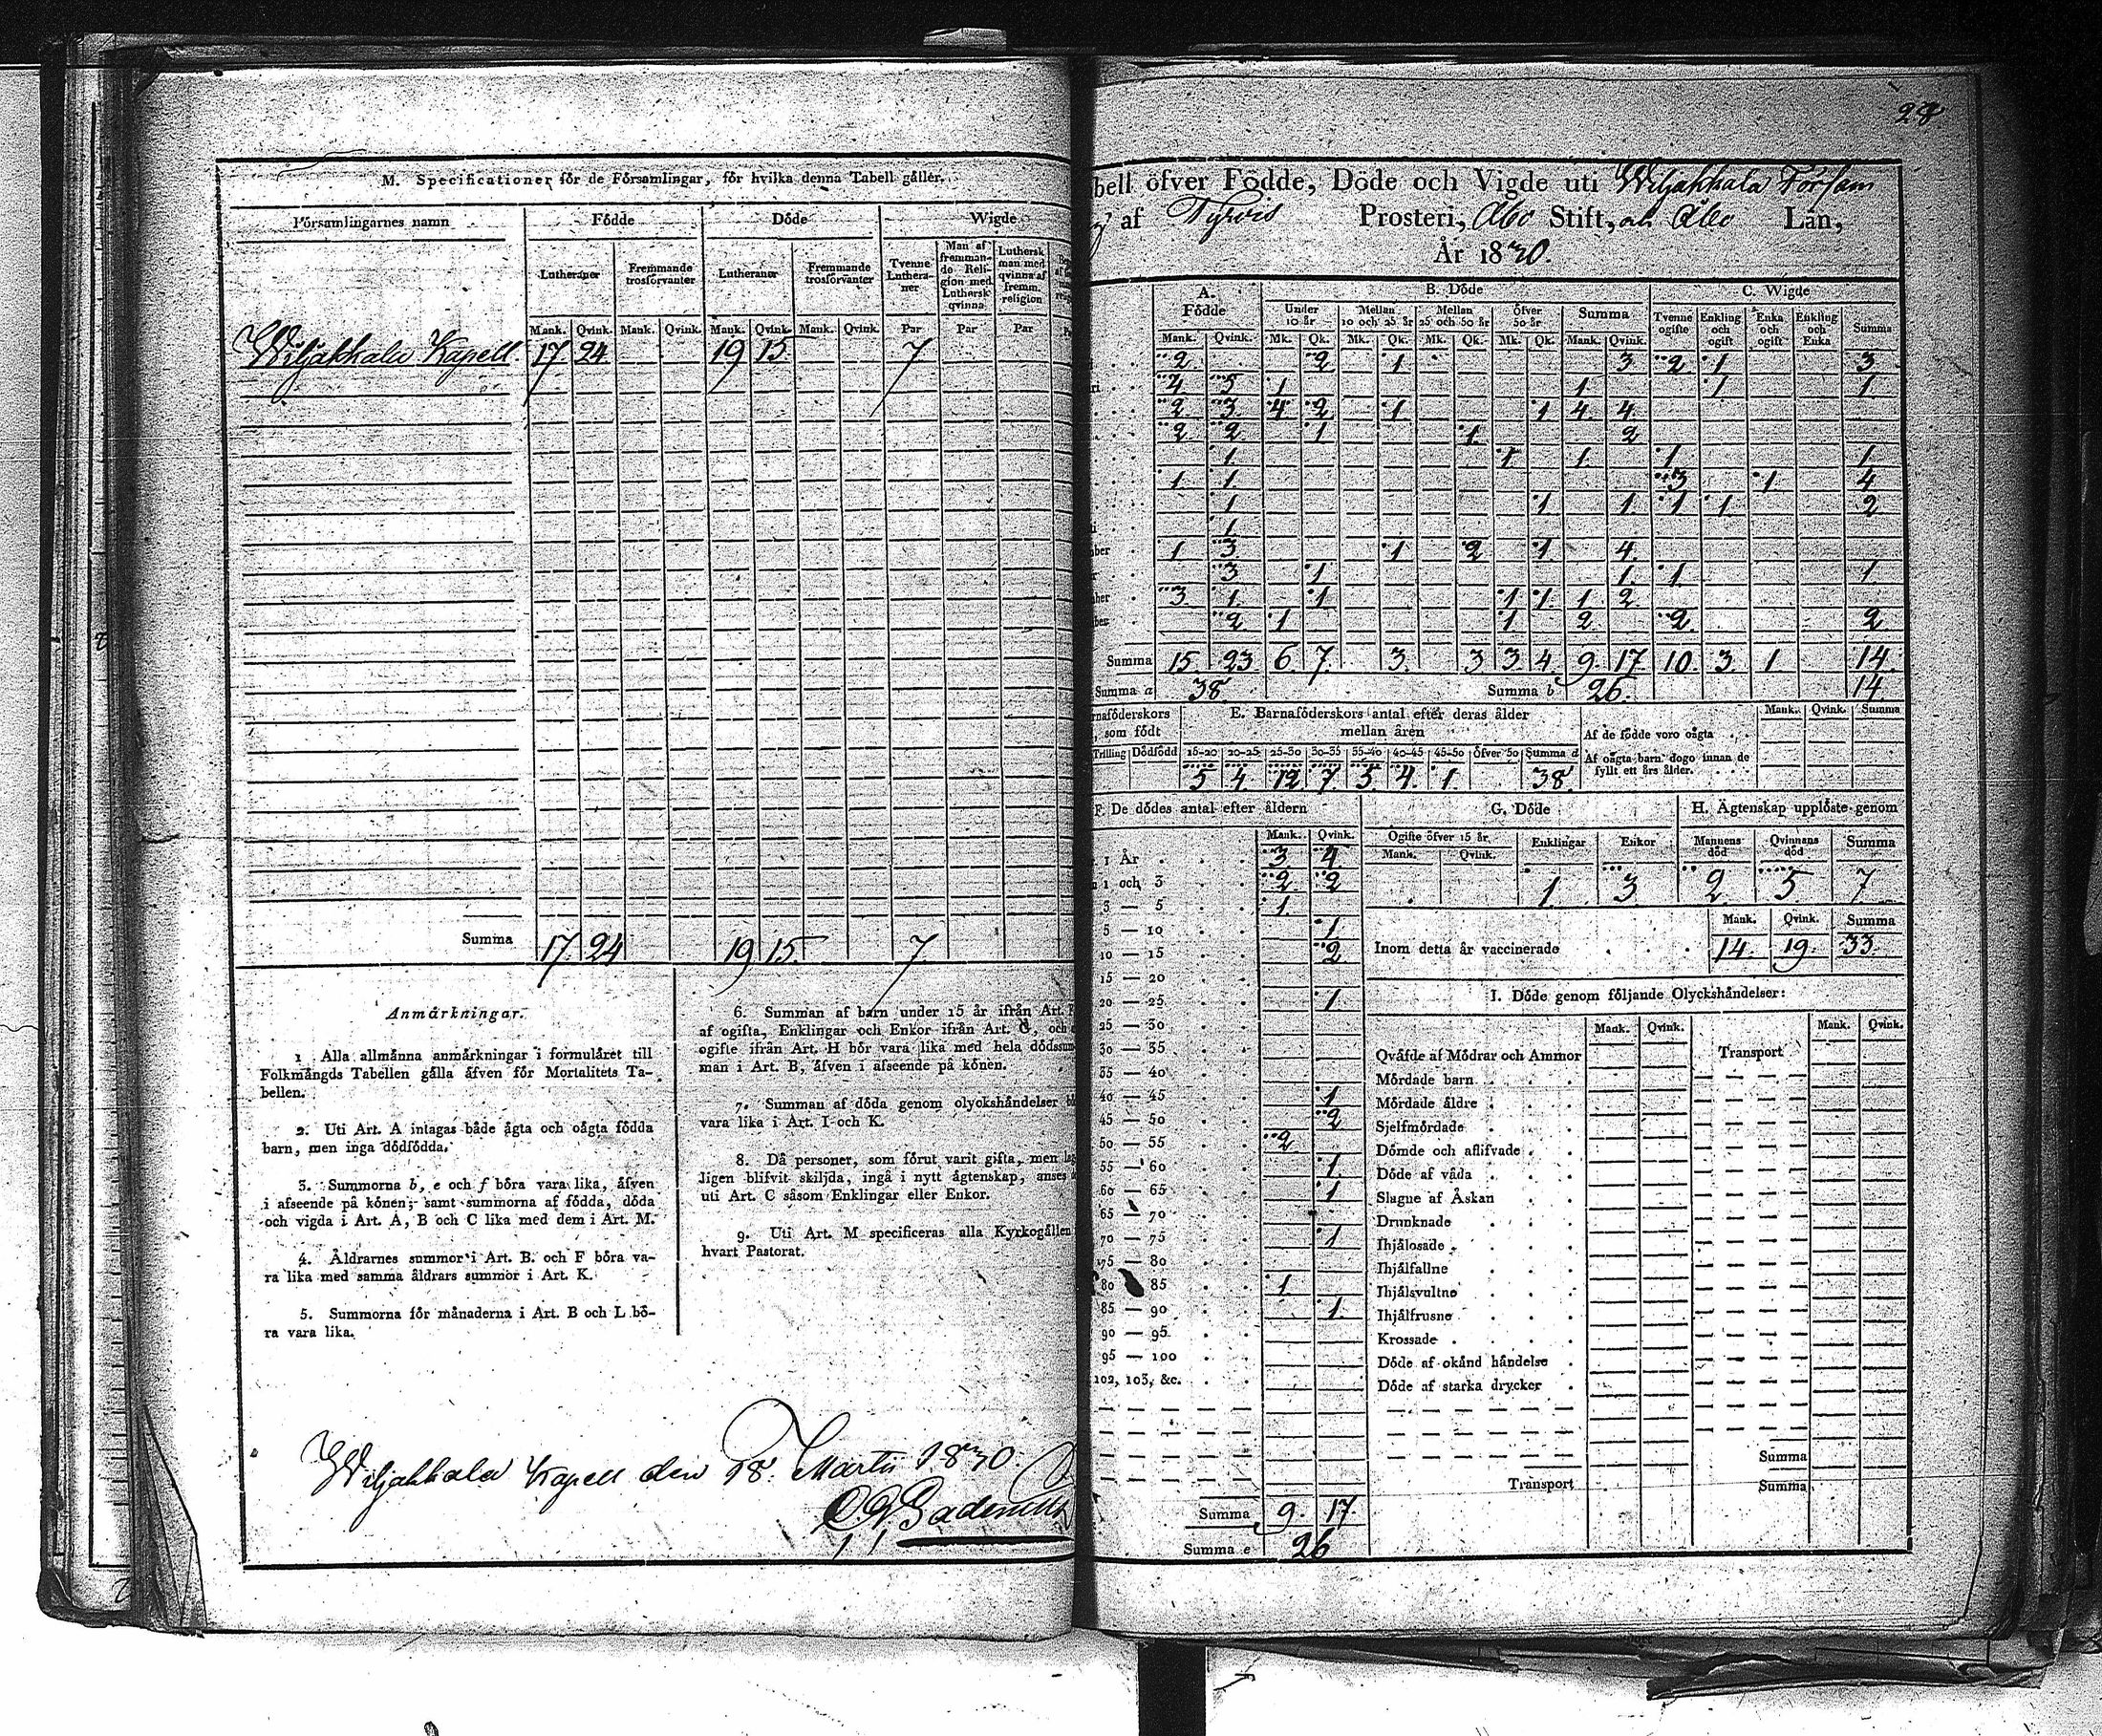 M. Specificationer för de Församlingar, för hvilka denna Tabell gäller.
Församlingarnes namn Födde Döde Wigde
Lutheraner Fremmande trosförvanter Lutheraner Fremmande trosförvanter Tvenne Lutheraner Man af fremmande Religion med Luthersk qvinna Luthersk man med qvinna af fremm. religion
Mank. Qvink. Mank. Qvink. Mank. Qvink. Mank. Qvink. Par Par Par
Wiljakkala Kapell 17 24 19 15 7
Summa 17 24 19 15 7
Anmärkningar.
1 Alla allmänna anmärkningar i formuläret till
Folkmängds Tabellen gälla äfven för Mortalitets Ta-
bellen.
2. Uti Art. A intagas både ägta och oägta födda
barn, men inga dödfödda.
3. Summorna b, e och f böra vara lika, äfven
i afseende på könen; samt summorna af födda, döda
och vigda i Art. A, B och C lika med dem i Art. M.
4. Åldrarnes summor i Art. B. och F böra va-
ra lika med samma åldrars summor i Art. K.
5. Summorna för månaderna i Art. B och L bö-
ra vara lika.
6. Summan af barn under 15 år ifrån Art.
af ogifta, Enklingar och Enkor ifrån Art. G, och
ogifte ifrån Art. H bör vara lika med hela dödssum
man i Art. B, äfven i afseende på könen.
7. Summan af döda genom olyckshändelser
vara lika i Art. I och K.
8. Då personer, som förut varit gifta, men
ligen blifvit skiljda, ingå i nytt ägtenskap, anses
uti Art. C såsom Enklingar eller Enkor.
9. Uti Art. M specificeras alla Kyrkogällen
hvart Pastorat.
Wiljakkala Kapell den 18. Martii 1830
28
bell öfver Födde, Döde och Vigde uti Wiljakkala Försam
af Tyrvis Prosteri, Åbo Stift, och Åbo Län,
År 1830.
A. Födde B. Döde C. Wigde
Under 10 år Mellan 10 och 25 år Mellan 25 och 50 år Öfver 50 år Summa Tvenne ogifte Enkling och ogift Enka och ogift Enkling och Enka Summa
Mank. Qvink. Mk. Qk. Mk. Qk. Mk. Qk. Mk. Qk. Mank. Qvink.
2 2 1 3 2 1 3
4 5 1 1 1 1
2 3 4 2 1 1 4 4
2 2 1 1 2
1 1 1 1 1
1 1 3 1 4
1 1 1 1 1 2
1
ber 1 3 1 2 1 4
3 1 1 1 1
3 1 1 1 1 1 2
2 1 1 2 2 2
Summa 15 23 6 7 3 3 3 4 9 17 10 3 1 14
Summa a 38 Summa b 26 14
rnaföderskors som födt
Trilling Dödfödd
E. Barnaföderskors antal efter deras ålder mellan åren
15-20 20-25 25-30 30-35 35-40 40-45 45-50 Öfver 50 Summa d
5 4 12 7 5 4 1 38
Mank. Qvink. Summa
Af de födde voro oägta
Af oägta barn dogo innan de
fyllt ett års ålder.
F. De dödes antal efter åldern
Mank. Qvink.
1 År 3 4
1 och 3 2 2
3 — 5 1
5 — 10 1
10 — 15 2
15 — 20
20 — 25 1
25 — 30
30 — 35
35 — 40
40 — 45 1
45 — 50 2
50 — 55 2
55 — 60 1
60 — 65 1
65 — 70
70 — 75 1
75 — 80
80 85 1
85 — 90 1
90 — 95
95 — 100
102, 103, &c.
Summa 9 17
Summa e 26
G. Döde
Ogifte öfver 15 år Enklingar Enkor
Mank. Qvink.
1 3
H. Ägtenskap upplöste genom
Mannens död Qvinnans död Summa
2 5 7
Mank. Qvink. Summa
Inom detta år vaccinerade 14 19 33
I. Döde genom följande Olyckshändelser:
Mank. Qvink. Mank. Qvink.
Qväfde af Mödrar och Ammor Transport
Mördade barn
Mördade äldre
Sjelfmördade
Dömde och aflifvade
Döde af våda
Slagne af Åskan
Drunknade
Ihjälosade
Ihjälfallne
Ihjälsvultne
Ihjälfrusne
Krossade
Döde af okänd händelse
Döde af starka drycker
Summa
Transport Summa